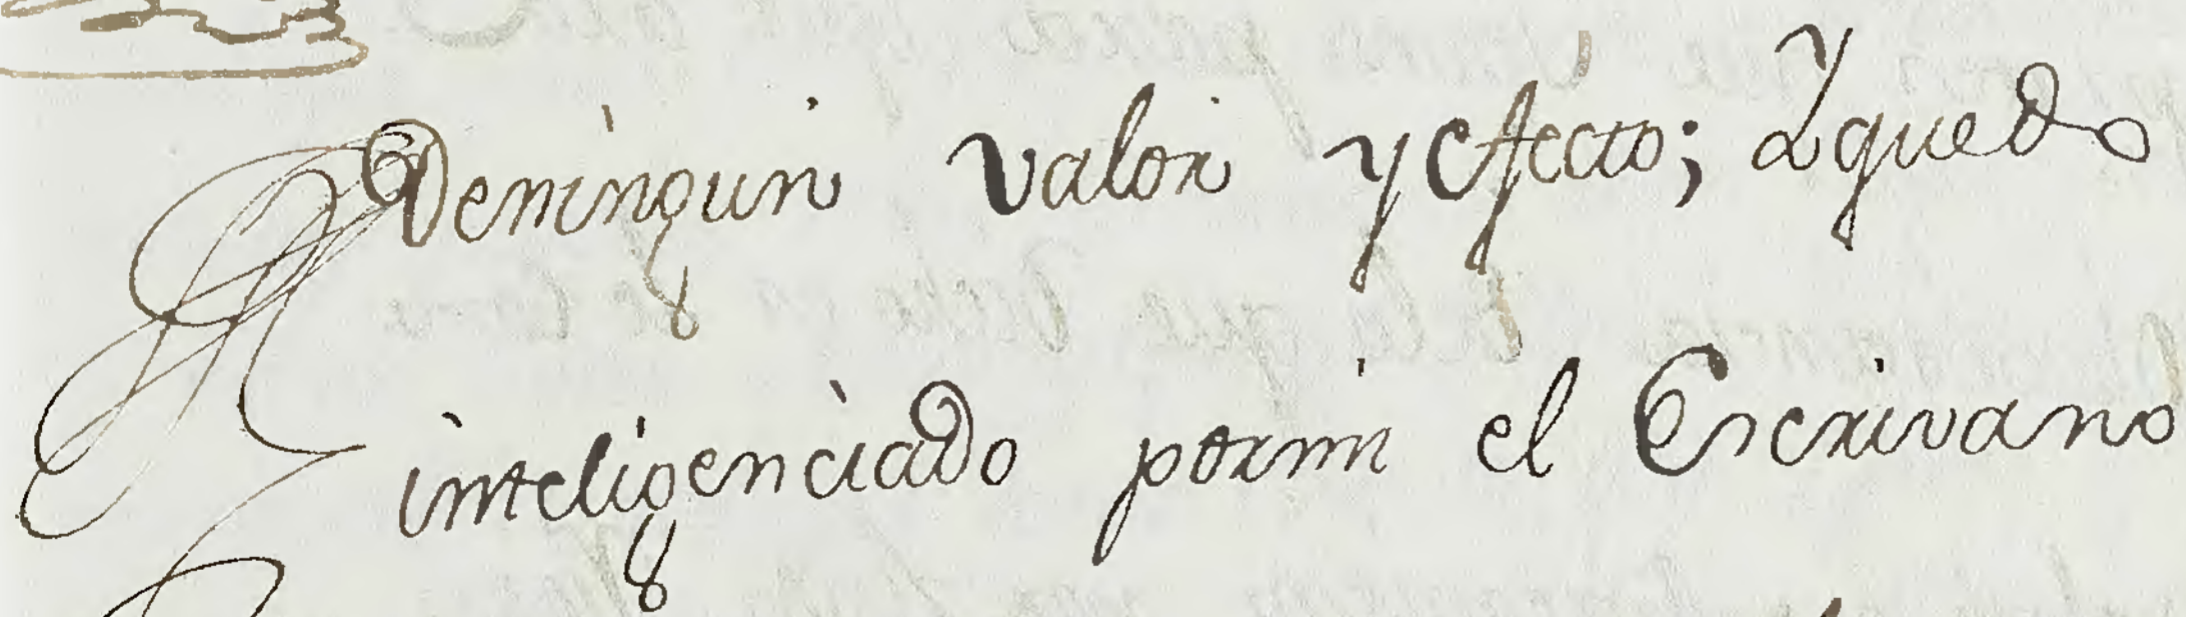 Deningun valor y efecto; Yquedo
inteligenciado pormi el Escrivano